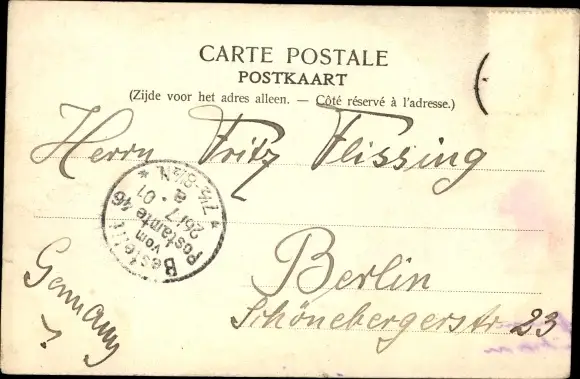 CARTE POSTALE
POSTKAART
(Zijde voor het adres alleen. — Côté réservé à l'adresse.)
Herrn Fritz Flissing
Bestellt
vom
Postamte 46
26/7. 01
7½-8½N.
Berlin
Schönebergerstr 23
Germany